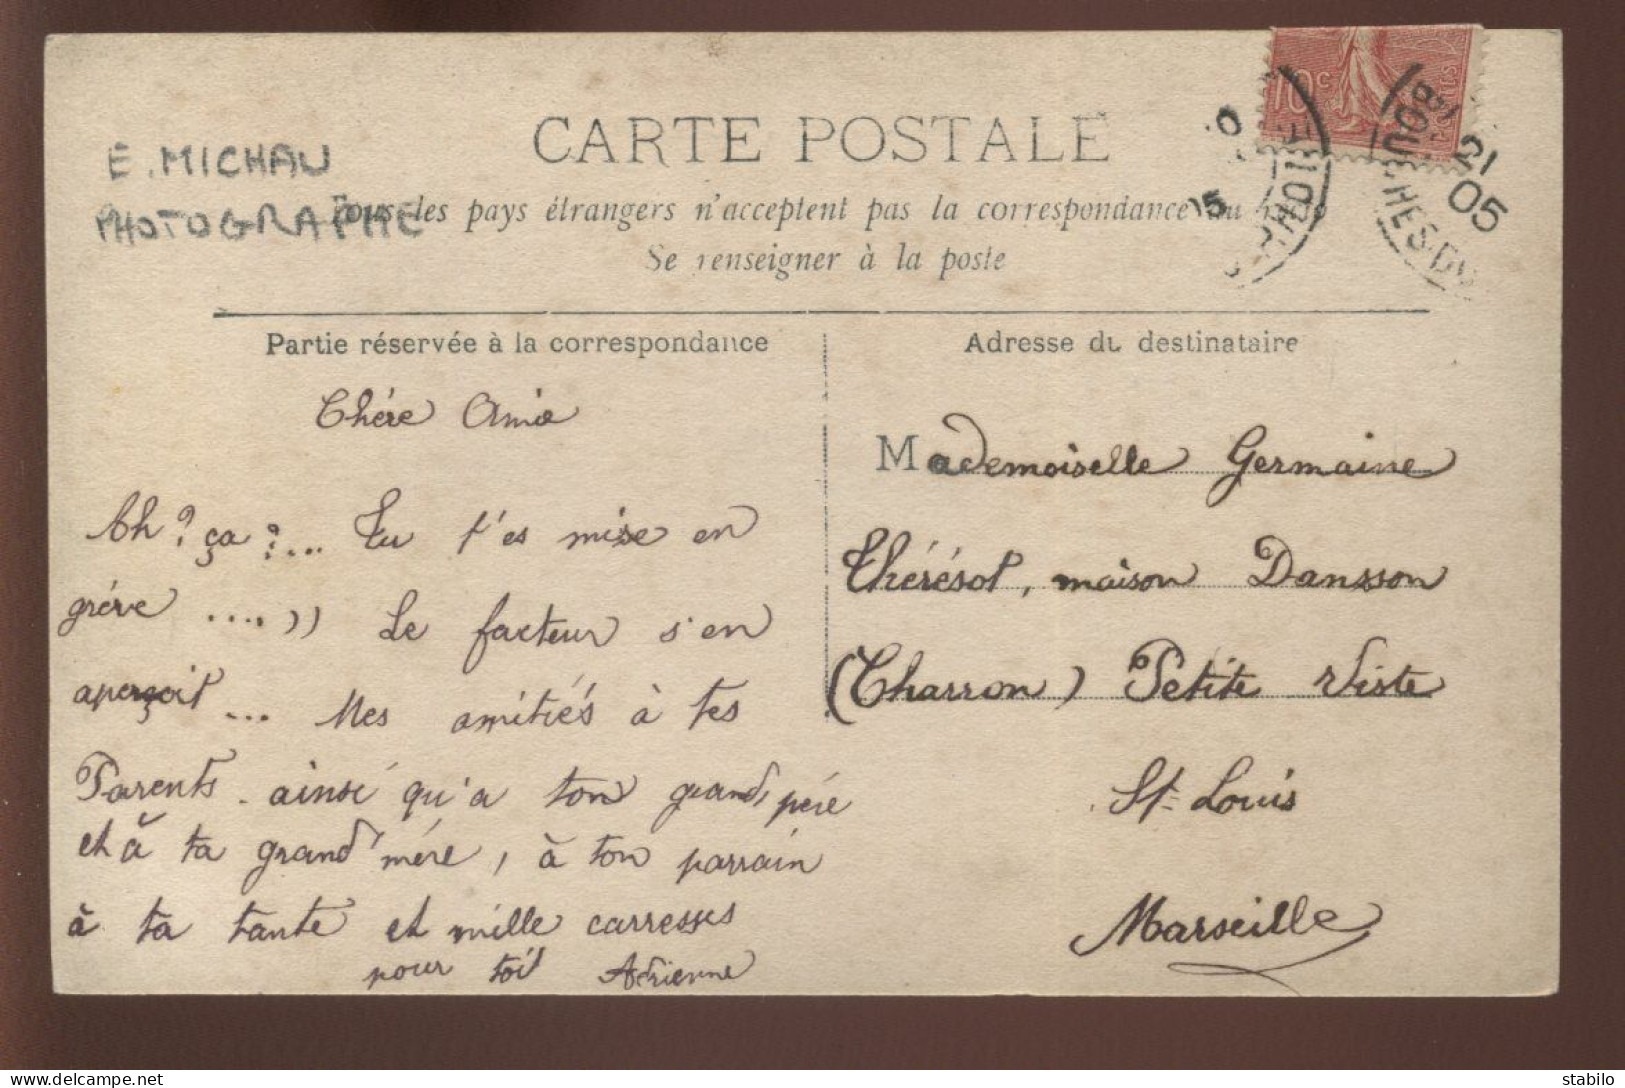 E. MICHAU
PHOTOGRAPHE
CARTE POSTALE
Tous les pays étrangers n'acceptent pas la correspondance au
Se renseigner à la poste
10c
21
05
BOUCHES-DU
Partie réservée à la correspondance
Adresse du destinataire
Chére Amie
Ah? ça?... Tu t'es mise en
gréve ....)) Le facteur s'en
aperçoit ... Mes amitiés à tes
Parents ainsi qu'a ton grand, pére
et à ta grand'mére, à ton parrain
à ta tante et mille carresses
pour toi Adrienne
Mademoiselle Germaine
Thérésol, maison Dansson
(Charron) Petite Viste
St Louis
Marseille
stabilo